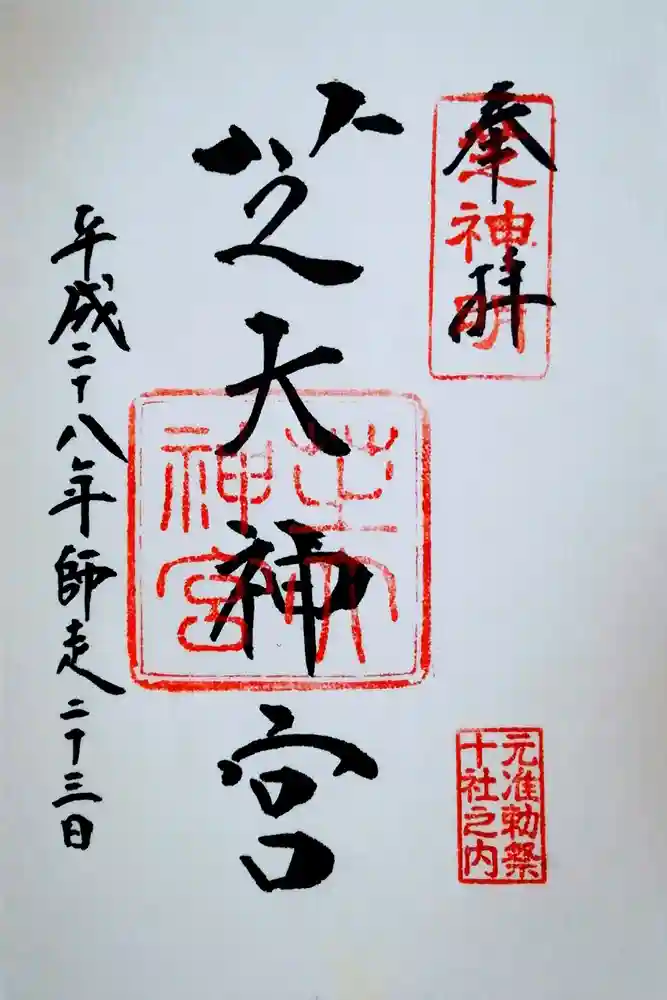 奉拝
芝神明
元准勅祭
十社之内
芝大神宮
芝大
神宮
平成二十八年師走二十三日